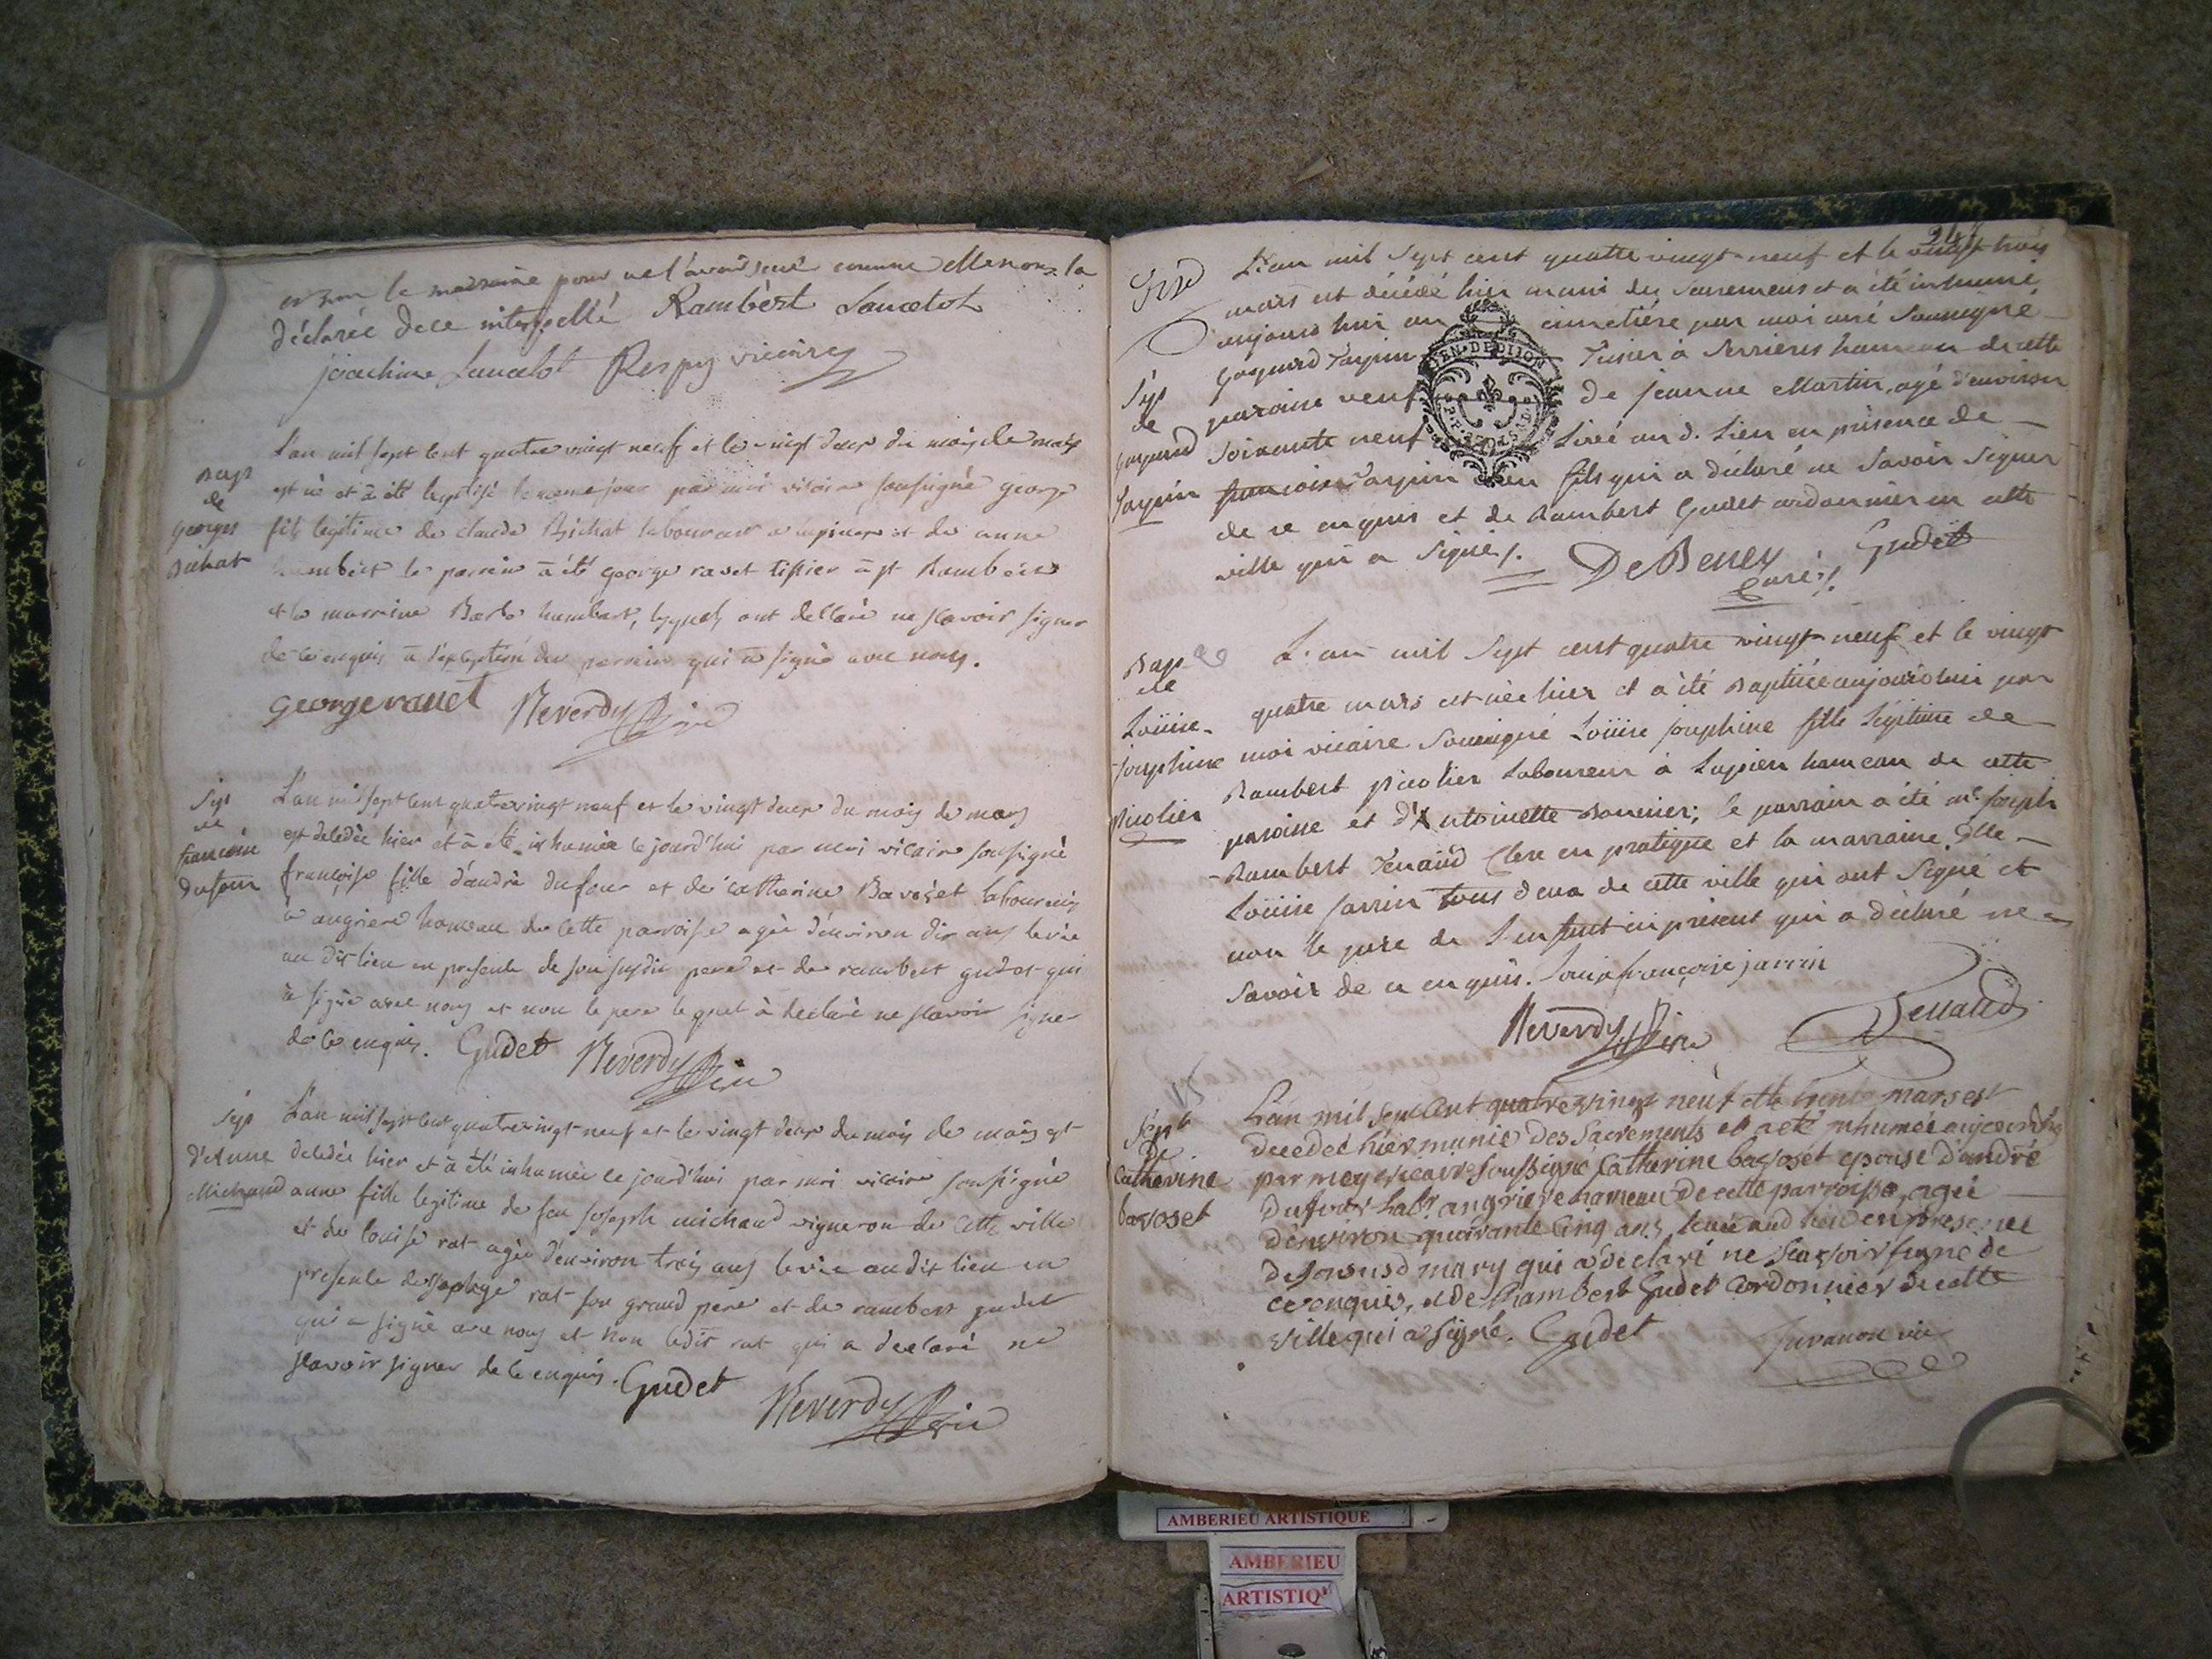 et non la marraine pour ne l'avoir sceu comme elle nous la
déclarée de ce interpellé Rambert Lancelot
joachim Lancelot Respy vicaire
Bap
de
Georges
Bichat
L'an mil sept cent quatre vingt neuf et le vingt deux du mois de mars
est né et à été baptisé le meme jour par moi vicaire soussigné george
fils legitime de claude Bichat laboureur a et de anne
humbert le parrein à été george ravet tissier à st Rambert
et la marraine Barbe humbert, lesquels ont desclaré ne sçavoir signer
de ce enquis à l'exception du parrein qui à signé avec nous.
george ravet Reverdy vic
Sep
de
francoise
Dufour
L'an mil sept cent quatre vingt neuf et le vingt deux du mois de mars
est décédée hier et à été inhumée le jourd'hui par moi vicaire soussigné
françoise fille d'andré dufour et de catherine Bavoset laboureurs
à angriere hameau de cette parroisse agée d'environ dix ans levée
au dit lieu en presence de son susdit pere et de rambert gudet qui
à signé avec nous et non le pere lequel à declaré ne sçavoir signer
de ce enquis. Gudet Reverdy vic
Sep
d'Anne
Michaud
L'an mil sept cent quatre vingt neuf et le vingt deux du mois de mars est
décédée hier et à été inhumée ce jourd'hui par moi vicaire soussigné
anne fille legitime de feu joseph michaud vigneron de cette ville
et de louise rat agée d'environ trois ans levée au dit lieu en
presence de rat son grand pere et de rambert gudet
qui a signé avec nous et non ledit rat qui a declaré ne
sçavoir signer de ce enquis. Gudet
Reverdy vic
Sep
de
gaspard
Tarpin
L'an mil sept cent quatre vingt neuf et le vingt trois
mars est décédé hier muni des sacremens et a été inhumé
aujourd'hui au cimetière par moi curé soussigné
gaspard Tarpin Tissier à Serrières hameau de cette
paroisse veuf de jeanne Martin, agé d'environ
soixante neuf levé aud. lieu en présence de
francois Tarpin son fils qui a déclaré ne savoir signer
de ce enquis et de Rambert Gudet cordonnier en cette
ville qui a signé /.
De Beney Gudet
curé /.
EN. DE DIJON
Bap
de
Loüise
Josephine
Picolier
L'an mil sept cent quatre vingt neuf et le vingt
quatre mars est née hier et a été baptisée aujourd'hui par
moi vicaire soussigné Loüise josephine fille légitime de
Rambert Picolier laboureur à Lupieu hameau de cette
paroisse et d'Antoinette Bonnier; le parrain a été mr. joseph
Rambert Tenaud clerc en pratique et la marraine Dlle
Loüise jarrin tous deux de cette ville qui ont signé et
non le pere de l'enfant ici présent qui a déclaré ne
savoir de ce enquis. Louise françoise jarrin
Reverdy vic Tenaud
Sepre
de
Catherine
bavoset
L'an mil sept cent quatre vingt neuf et le trente mars est
décédée hier munie des Sacrements et a eté inhumée aujourd'hui
par moy vicaire soussigné Catherine bavoset epouse d'andré
Dufour labr. angrieres hameau de cette parroisse, agée
d'environ quarante cinq ans, levée aud lieu en presence
de son susd mary qui a declaré ne sçavoir signé de
ce enquis, et de Rambert Gudet Cordonnier de cette
ville qui a signé. Gudet Juvanon vic
AMBERIEU ARTISTIQUE
AMBERIEU
ARTISTIQ